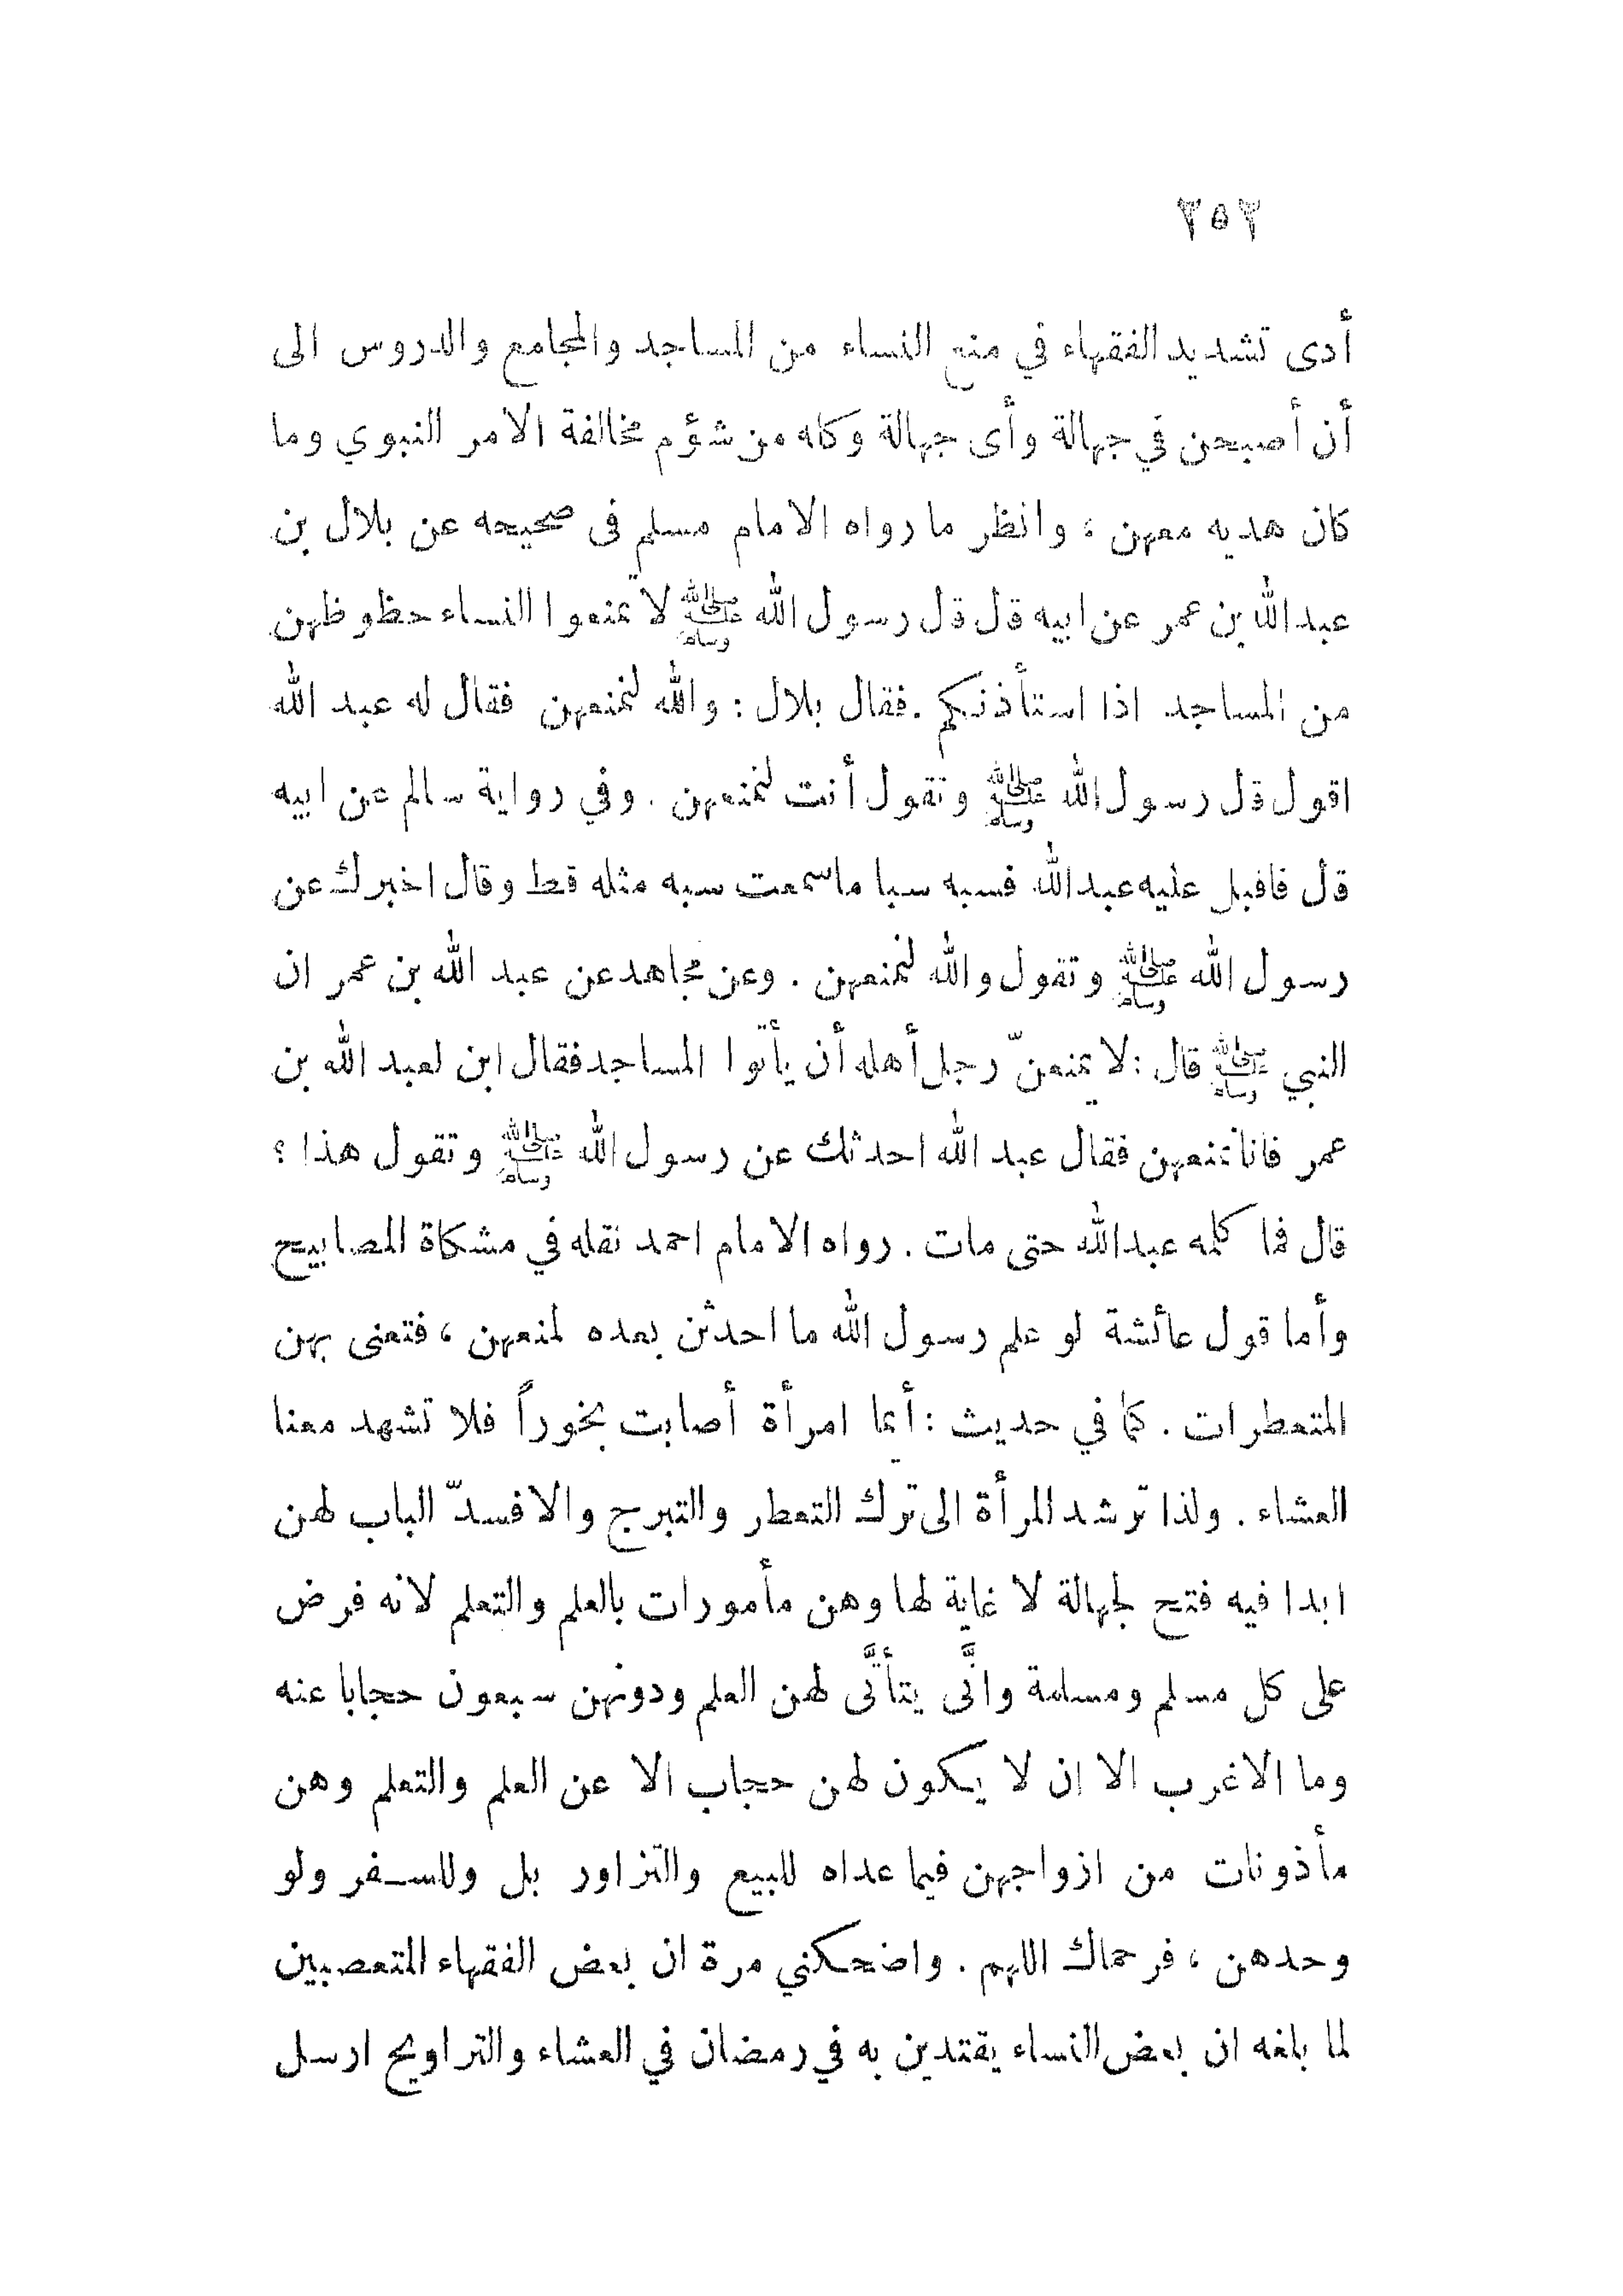 ٢٥٢
أدى تشديد الفقهاء في منع النساء من المساجد والمجامع والدروس الى
أن أصبحن في جهالة وأى جهالة وكله من شؤم مخالفة الامر النبوي وما
كان هديه معهن ، وانظر ما رواه الامام مسلم فى صحيحه عن بلال بن
عبد الله بن عمر عن ابيه قل قل رسول الله ﷺ لا تمنعوا النساء حظوظهن
من المساجد اذا استأذنكم . فقال بلال : والله لنمنعهن فقال له عبد الله
اقول قل رسول الله ﷺ وتقول أنت لنمنعهن . وفي رواية سالم عن ابيه
قل فاقبل عليه عبد الله فسبه سبا ما سمعت سبه مثله قط وقال اخبرك عن
رسول الله ﷺ وتقول والله لنمنعهن . وعن مجاهد عن عبد الله بن عمر ان
النبي ﷺ قال : لا يمنعنّ رجل أهله أن يأتوا المساجد فقال ابن لعبد الله بن
عمر فانا نمنعهن فقال عبد الله احدثك عن رسول الله ﷺ وتقول هذا ؟
قال فما كلمه عبد الله حتى مات . رواه الامام احمد نقله في مشكاة المصابيح
وأما قول عائشة لو علم رسول الله ما احدثن بعده لمنعهن ، فتعنى بهن
المتعطرات . كما في حديث : أيما امرأة أصابت بخوراً فلا تشهد معنا
العشاء . ولذا ترشد المرأة الى ترك التعطر والتبرج والا فسدّ الباب لهن
ابدا فيه فتح لجهالة لا غاية لها وهن مأمورات بالعلم والتعلم لانه فرض
على كل مسلم ومسلمة وانَّى يتأتَّى لهن العلم ودونهن سبعون حجابا عنه
وما الاغرب الا ان لا يكون لهن حجاب الا عن العلم والتعلم وهن
مأذونات من ازواجهن فيما عداه للبيع والتزاور بل وللسفر ولو
وحدهن ، فرحماك اللهم . واضحكني مرة ان بعض الفقهاء المتعصبين
لما بلغه ان بعض النساء يقتدين به في رمضان في العشاء والتراويح ارسل